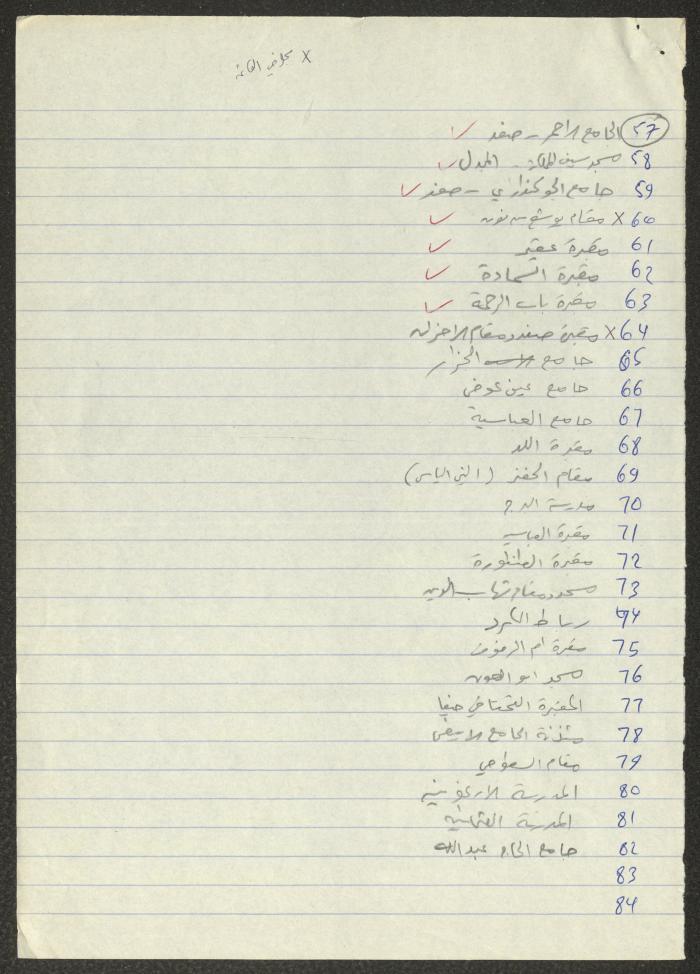 X بحاجة
57 الجامع الاحمر - صفد ✓
58 مسجد - المجدل ✓
59 جامع الجوكنداري - صفد ✓
60 X مقام يوشع بن نون ✓
61 مقبرة عقير ✓
62 مقبرة السعادة ✓
63 مقبرة باب الرحمة ✓
64 X مقبرة صفد ومقام الاحزان
65 جامع الجزار
66 جامع عين عوض
67 جامع العباسية
68 مقبرة اللد
69 مقام الخضر (النبي الياس)
70 مدرسة الدج
71 مقبرة العباسية
72 مقبرة الطنطورة
73 مسجد ومقام شهاب الدين
74 رباط الكرد
75 مقبرة ام الرموف
76 مسجد ابو العون
77 المقبرة التحتا في حيفا
78 مئذنة الجامع الابيض
79 مقام السطوحي
80 المدرسة الارغونية
81 المدرسة العثمانية
82 جامع الحاج عبدالله
83
84